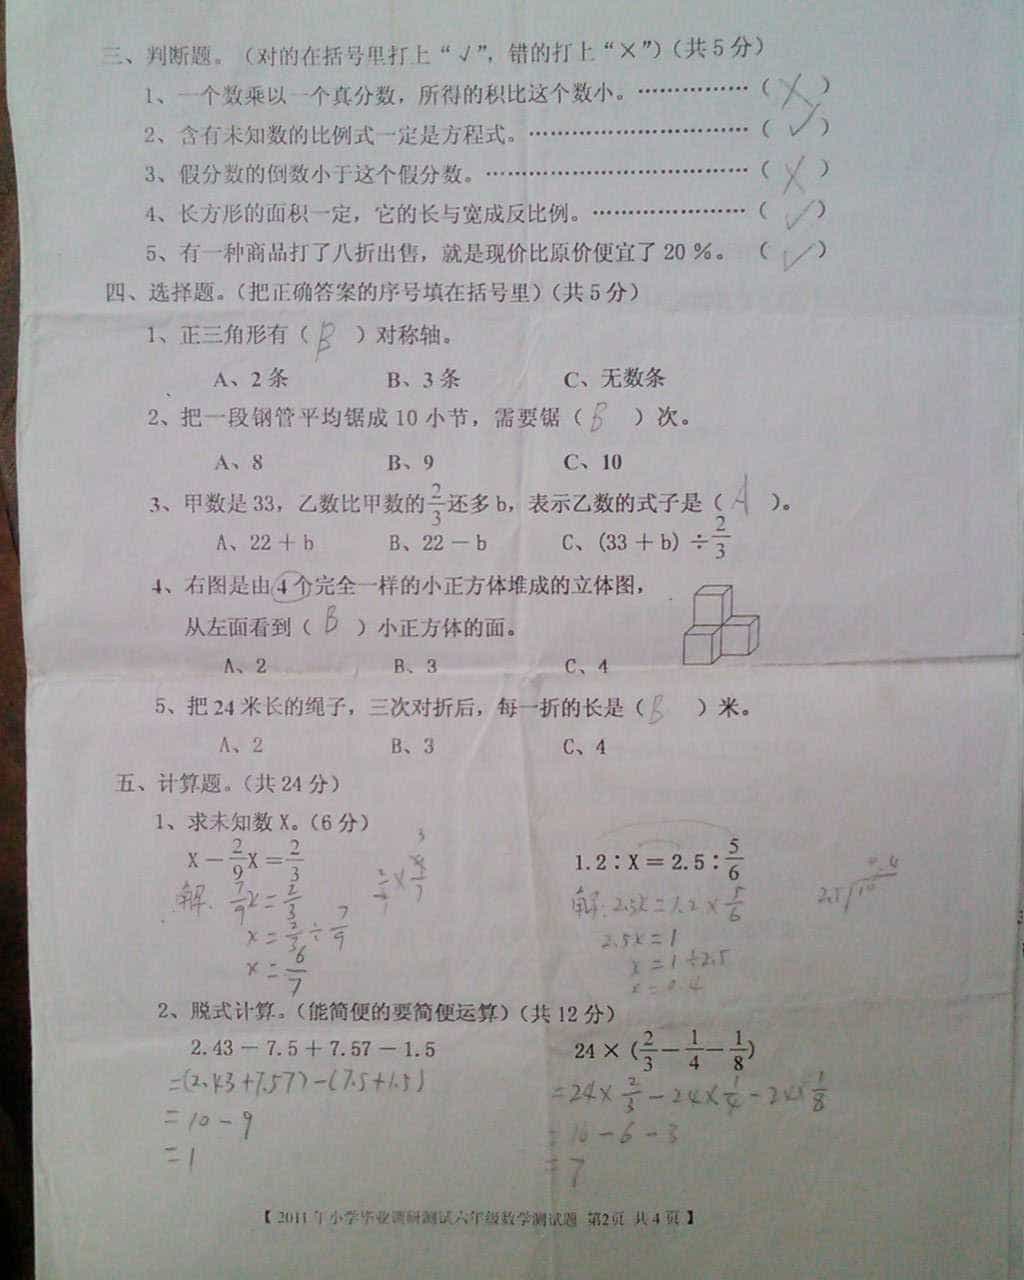 三、判断题。（对的在括号里打上“√”，错的打上“×”）（共5分）
1、一个数乘以一个真分数，所得的积比这个数小。……………（ × ）
2、含有未知数的比例式一定是方程式。…………………………（ √ ）
3、假分数的倒数小于这个假分数。………………………………（ × ）
4、长方形的面积一定，它的长与宽成反比例。…………………（ √ ）
5、有一种商品打了八折出售，就是现价比原价便宜了20％。（ √ ）
四、选择题。（把正确答案的序号填在括号里）（共5分）
1、正三角形有（ B ）对称轴。
A、2条 B、3条 C、无数条
2、把一段钢管平均锯成10小节，需要锯（ B ）次。
A、8 B、9 C、10
3、甲数是33，乙数比甲数的2/3还多b，表示乙数的式子是（ A ）。
A、22＋b B、22－b C、(33＋b)÷2/3
4、右图是由4个完全一样的小正方体堆成的立体图，
从左面看到（ B ）小正方体的面。
A、2 B、3 C、4
5、把24米长的绳子，三次对折后，每一折的长是（ B ）米。
A、2 B、3 C、4
五、计算题。（共24分）
1、求未知数X。（6分）
X－2/9X＝2/3 1.2：X＝2.5：5/6
解：7/9x=2/3 解：2.5x=1.2×5/6
x=2/3÷7/9 2.5x=1
x=6/7 x=1÷2.5
x=0.4
2、脱式计算。（能简便的要简便运算）（共12分）
2.43－7.5＋7.57－1.5 24×(2/3－1/4－1/8)
=(2.43+7.57)-(7.5+1.5) =24×2/3-24×1/4-24×1/8
=10-9 =16-6-3
=1 =7
【2011年小学毕业调研测试六年级数学测试题 第2页 共4页】